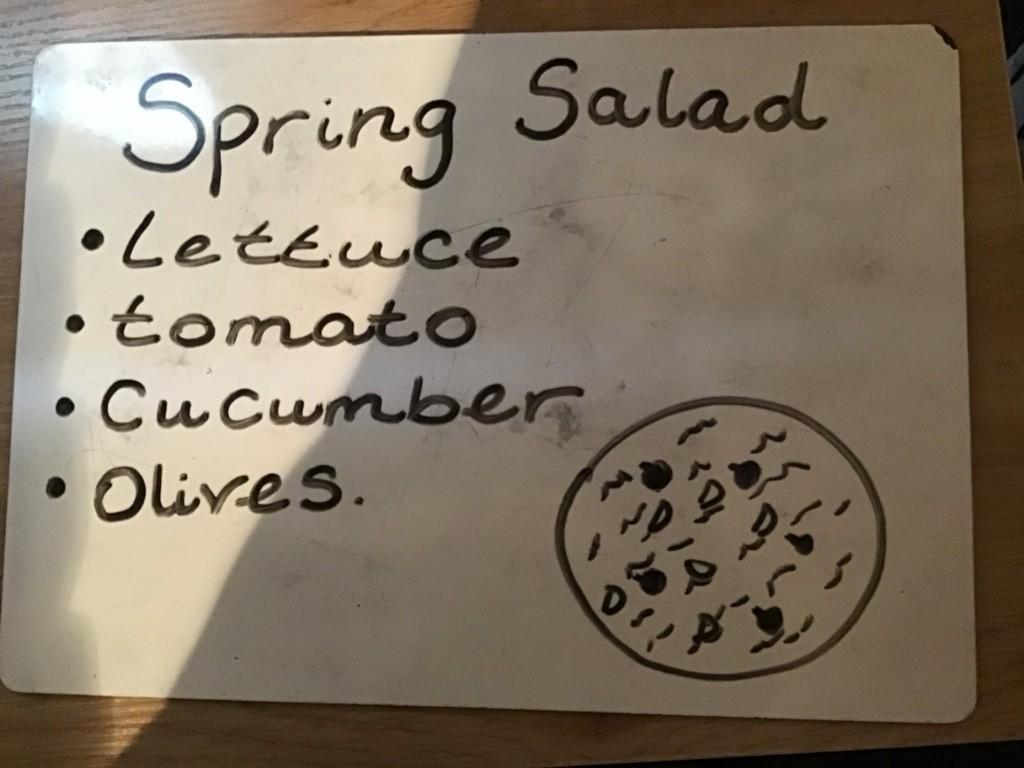 Spring Salad
• Lettuce
• tomato
• Cucumber
• Olives.